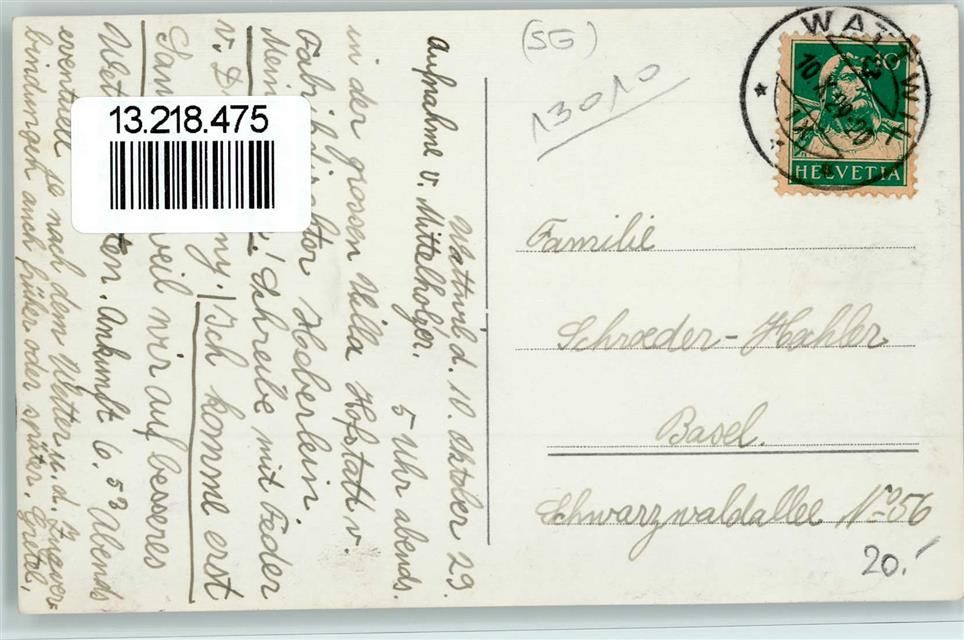 Wattwil d. 10. Oktober 29.
Aufnahme v. Mittelholzer.
5 Uhr abends.
in der grossen Villa Hofstatt v.
Fabrikdirektor Heberlein.
Schreibe mit Feder
v. D ny.) Ich komme erst
weil wir auf besseres
Wet ten. Ankunft 6.53 Abends
eventuell je nach dem Wetter u. d. Zugver-
bindungen auch früher oder später. Gretel,
(SG)
13010
WATTWIL
10.X.29.20
10
HELVETIA
13.218.475
Familie
Schroeder-Hahler
Basel.
Schwarzwaldallee No 56
20.-